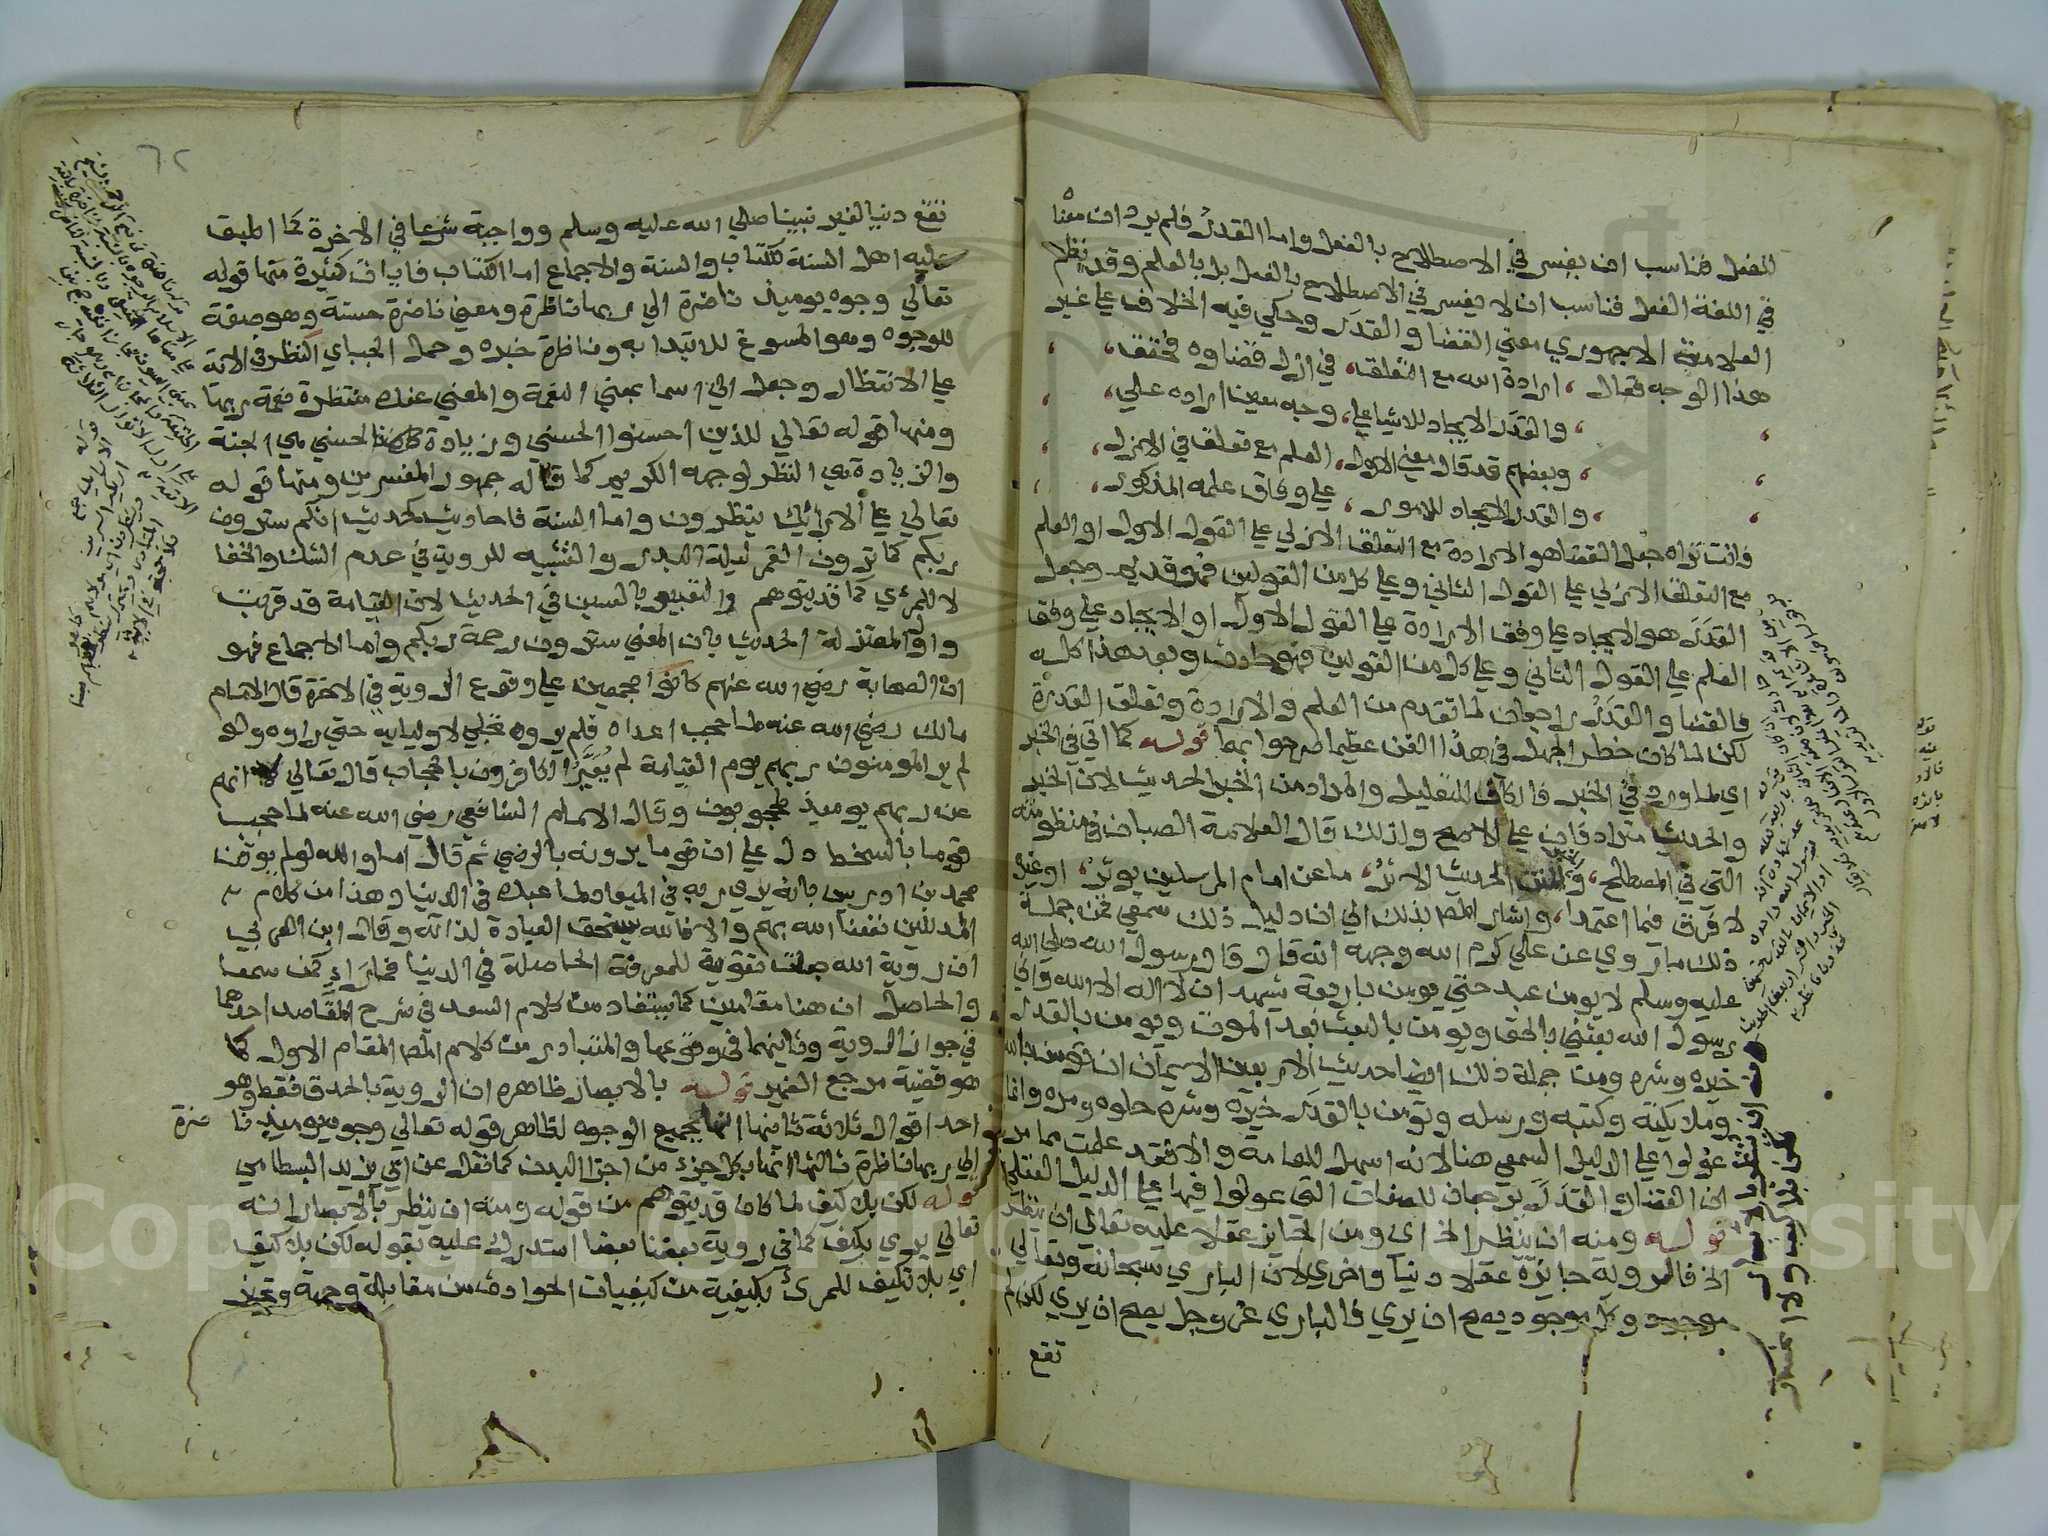 للفعل فناسب ان يفسر في الاصطلاح بالفعل واما القدر فلم يرد ان معناه
في اللغة الفعل فناسب ان لا يفسر في الاصطلاح بالفعل بل بالعلم وقد نظم
العلامة الاجهوري معني القضا والقدر وحكي فيه الخلاف علي غير
هذا الوجه فقال ، ارادة الله مع التعلق ، في ازل قضاوه فحقق ،
، والقدر الايجاد للاشيا علي ، وجه معين اراده علي ،
، وبعضهم قد قال معني الاول ، العلم مع تعلق في الازل ،
، والقدر الايجاد للامور ، علي وفاق علمه المذكور ،
فانت تراه جعل القضا هو الارادة مع التعلق الازلي علي القول الاول او العلم
مع التعلق الازلي علي القول الثاني وعلي كل من القولين فهو قديم وجعل
القدر هو الايجاد علي وفق الارادة علي القول الاول او الايجاد علي وفق
العلم علي القول الثاني وعلي كل من القولين فهو حادث وبعد هذا كله
فالقضا والقدر راجعان لما تقدم من العلم والارادة وتعلق القدرة
لكن لما كان خطر الجهل في هذا الفن عظيما صرحوا بهما قوله كما اتي في الخبر
اي لما ورد في الخبر فالكاف للتعليل والمراد من الخبر الحديث لان الخبر
والحديث مترادفان علي الاصح ولذلك قال العلامة الصبان في منظومته
التي في المصطلح ، الحديث الاثر ، ما عن امام المرسلين يوثر ، او غيره
لا فرق فيما اعتمدا ، واشار المص بذلك الي ان دليل ذلك سمعي فمن جملة
ذلك ما روي عن علي كرم الله وجهه انه قال قال رسول الله صلي الله
عليه وسلم لا يومن عبد حتي يومن باربعة يشهد ان لا اله الا الله واني
رسول الله بعثني بالحق ويومن بالبعث بعد الموت ويومن بالقدر
خيره وشره ومن جملة ذلك ايضا حديث الاربعين الايمان ان تومن بالله
وملايكته وكتبه ورسله وتومن بالقدر خيره وشره حلوه ومره وانما
عولوا علي الدليل السمعي هنا لانه اسهل للعامة والا فقد علمت مما مر
ان القضا والقدر يرجعان للصفات التي عولوا فيها علي الدليل العقلي
قوله ومنه ان ينظر الخ اي ومن الجايز عقلا عليه تعالي ان ينظر
الخ فالروية جايزة عقلا دنيا واخري لان الباري سبحانه وتعالي
موجود وكل موجود يصح ان يري فالباري عز وجل يصح ان يري لكن لم
تقع
٦٢
تقع دنيا لغير نبينا صلي الله عليه وسلم وواجبة شرعا في الاخرة كما اطبق
عليه اهل السنة للكتاب والسنة والاجماع اما الكتاب فايات كثيرة منها قوله
تعالي وجوه يوميذ ناضرة الي ربها ناظرة ومعني ناضرة حسنة وهو صفة
للوجوه وهو المسوغ للابتدا به وناظرة خبره وحمل الجباي النظر في الاية
علي الانتظار وجعل الي اسما بمعني النعمة والمعني عنده منتظرة نعمة ربها
ومنها قوله تعالي للذين احسنوا الحسني وزيادة فالحسني هي الجنة
والزيادة هي النظر لوجهه الكريم كما قاله جمهور المفسرين ومنها قوله
تعالي علي الارائك ينظرون واما السنة فاحاديث كحديث انكم سترون
ربكم كما ترون القمر ليلة البدر والتشبيه للروية في عدم الشك والخفا
لا للمرئي كما قد يتوهم والتعبير بالسين في الحديث لان القيامة قد قربت
واول المعتزلة الحديث بان المعني سترون رحمة ربكم واما الاجماع فهو
ان الصحابة رضي الله عنهم كانوا مجمعين علي وقوع الروية في الاخرة قال الامام
مالك رضي الله عنه لما حجب اعداه فلم يروه تجلي لاوليايه حتي راوه ولو
لم ير المومنون ربهم يوم القيامة لم يعير الكافرون بالحجاب قال تعالي انهم
عن ربهم يوميذ لمحجوبون وقال الامام الشافعي رضي الله عنه لما حجب
قوما بالسخط دل علي ان قوما يرونه بالرضي ثم قال اما والله لو لم يوقن
محمد بن ادريس بانه يري ربه في الميعاد لما عبده في الدنيا وهذا من كلام
المدللين نفعنا الله بهم والا فالله يستحق العبادة لذاته وقال ابن العربي
ان روية الله جعلت تقوية للمعرفة الحاصلة في الدنيا فما راء كمن سمعا
والحاصل ان هنا مقامين كما يستفاد من كلام السعد في شرح المقاصد احدهما
في جواز الروية وثانيهما في وقوعها والمتبادر من كلام المص المقام الاول كما
هو قضية مرجع الضمير قوله بالابصار ظاهره ان الروية بالحدق فقط وهو
احد اقوال ثلاثة ثانيها انها بجميع الوجه لظاهر قوله تعالي وجوه يوميذ ناضرة
الي ربها ناظرة ثالثها انها بكل جزء من اجزا البدن كما نقل عن ابي يزيد البسطامي
قوله لكن بلا كيف لما كان قد يتوهم من قوله ومنه ان ينظر بالابصار انه
تعالي يري بكيف كما في روية بعضنا بعضا استدرك عليه بقوله لكن بلا كيف
اي بلا تكيف للمرئ بكيفية من كيفيات الحوادث من مقابلة وجهة وتحيز
Copyright © King Saud University